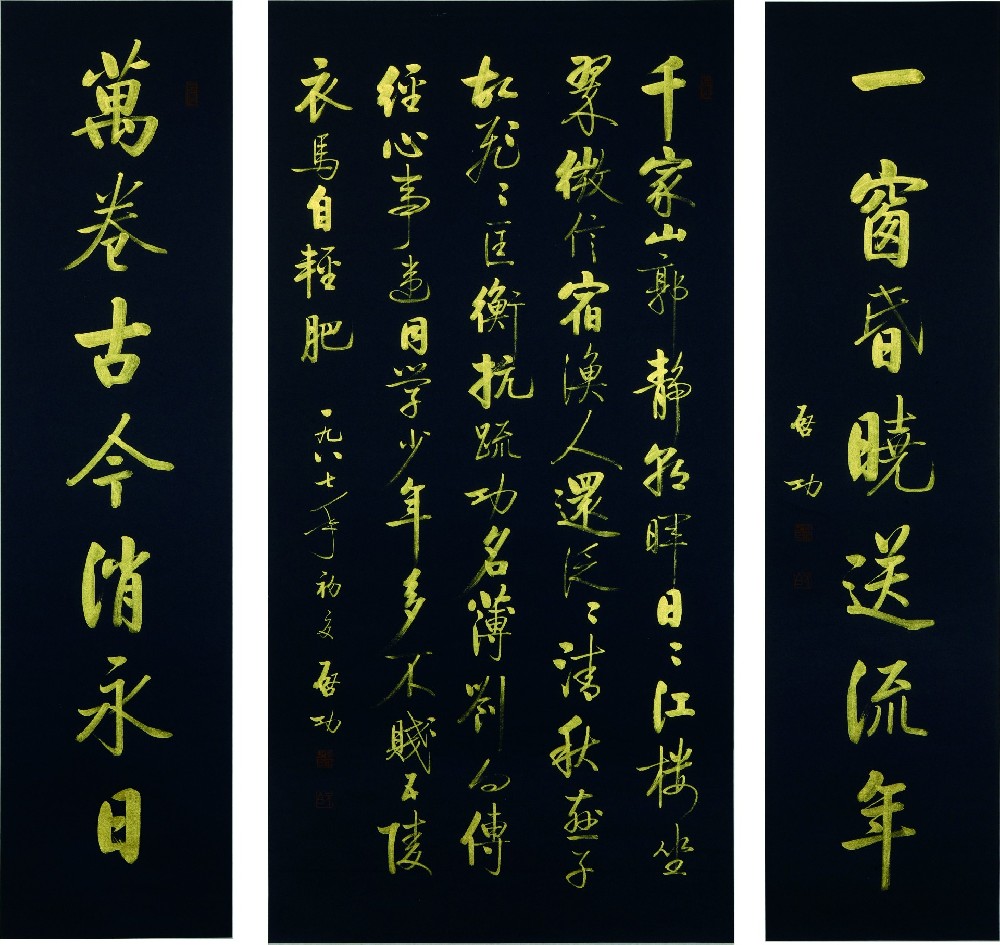 一窗昏曉送流年
啟功
千家山郭靜朝暉日〻江樓坐
翠微信宿漁人還泛〻清秋燕子
故飛〻匡衡抗疏功名薄劉向傳
經心事違同学少年多不賤五陵
衣馬自輕肥 一九八七年初夏 啟功
萬卷古今消永日